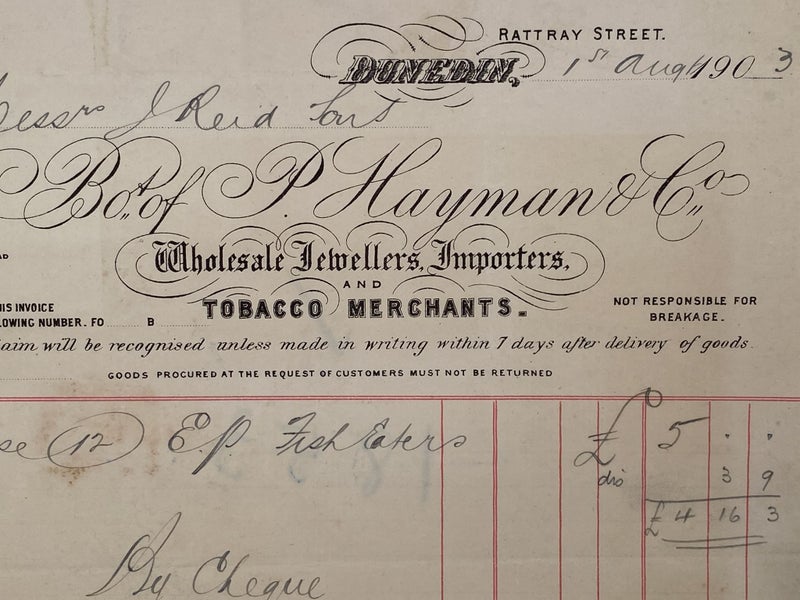 RATTRAY STREET.
DUNEDIN, 1st Aug 1903
essrs J Reid
Bot. of P. Hayman & Co.
Wholesale Jewellers, Importers,
AND
TOBACCO MERCHANTS.
NOT RESPONSIBLE FOR
BREAKAGE.
HIS INVOICE
LOWING NUMBER. FO B
aim will be recognised unless made in writing within 7 days after delivery of goods.
GOODS PROCURED AT THE REQUEST OF CUSTOMERS MUST NOT BE RETURNED
se 12 E.P. Fish Eaters £ 5 . .
dis 3 9
£ 4 16 3
By Cheque